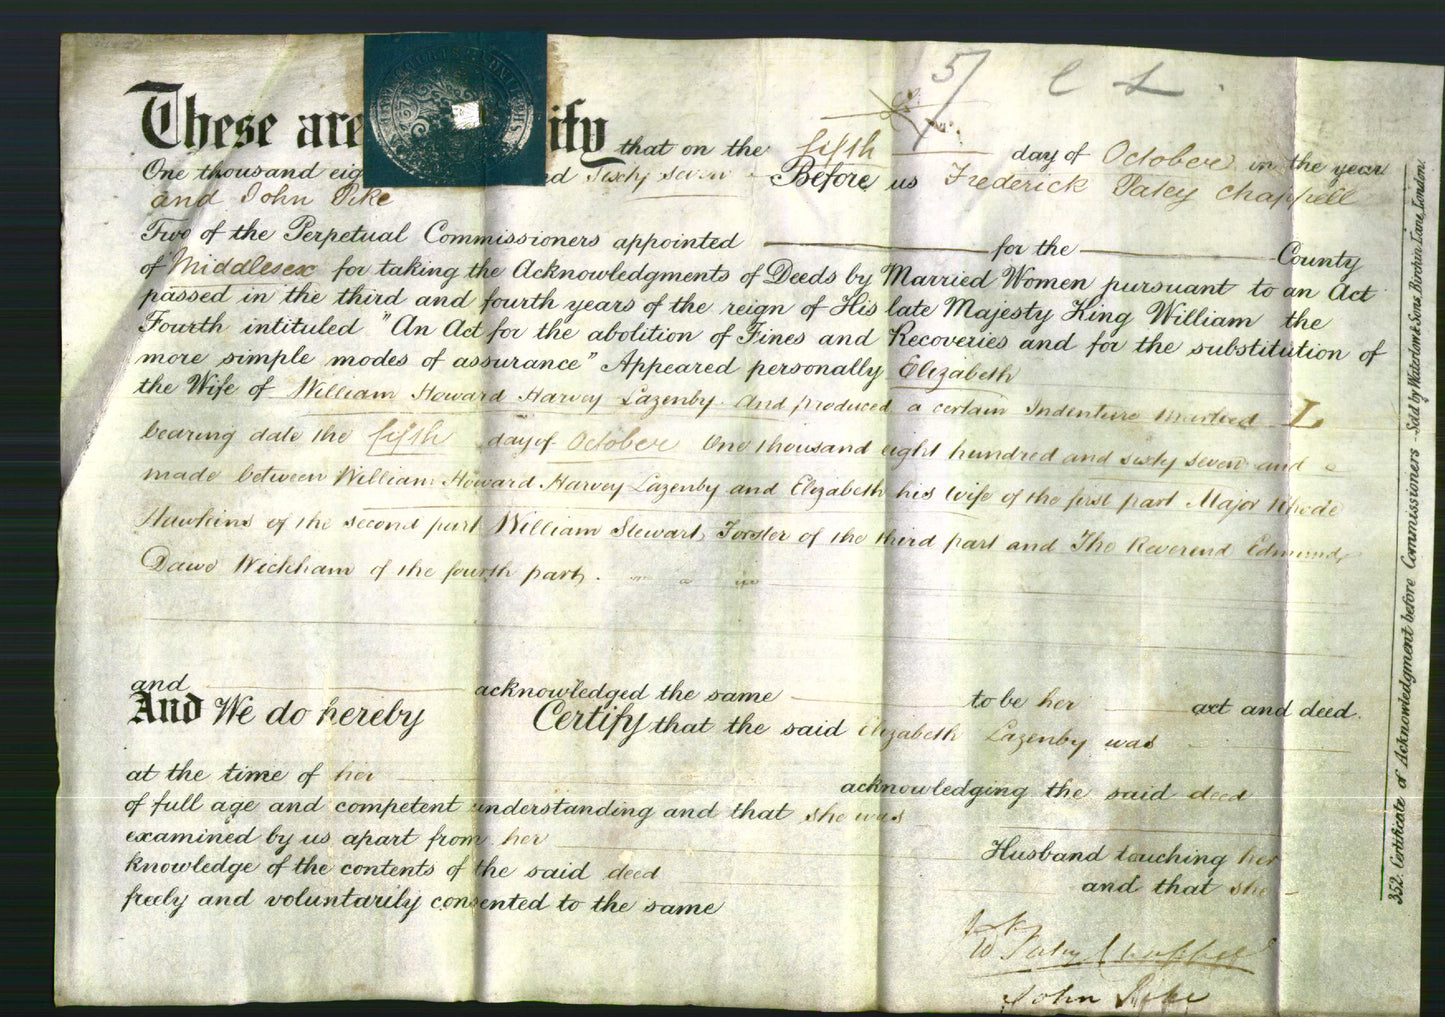 5/ C L
These are ify that on the fifth day of October in the year
One thousand eig ed Sixty seven Before us Frederick Patey Chappell
and John Pike
Two of the Perpetual Commissioners appointed for the County
of Middlesex for taking the Acknowledgments of Deeds by Married Women pursuant to an Act
passed in the third and fourth years of the reign of His late Majesty King William the
Fourth intituled "An Act for the abolition of Fines and Recoveries and for the substitution of
more simple modes of assurance" Appeared personally Elizabeth
the Wife of William Howard Harvey Lazenby And produced a certain Indenture marked L
bearing date the fifth day of October One thousand eight hundred and sixty seven and
made between William Howard Harvey Lazenby and Elizabeth his wife of the first part Major Rhode
Hawkins of the second part William Stewart Forster of the third part and The Reverend Edmund
Dawe Wickham of the fourth part.
and acknowledged the same to be her act and deed.
And We do hereby Certify that the said Elizabeth Lazenby was
at the time of her acknowledging the said deed
of full age and competent understanding and that she was
examined by us apart from her Husband touching her
knowledge of the contents of the said deed and that she
freely and voluntarily consented to the same
Patey Chappell
John Pike
352. Certificate of Acknowledgment before Commissioners - Sold by Waterlow & Sons, Birchin Lane, London.